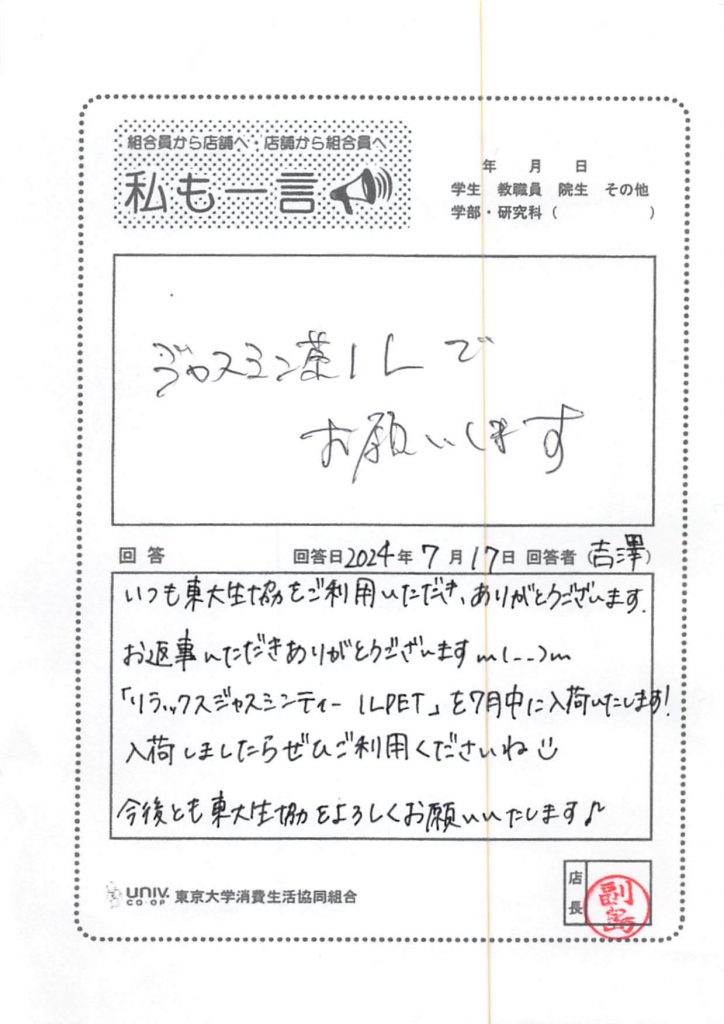 組合員から店舗へ・店舗から組合員へ
私も一言
年 月 日
学生 教職員 院生 その他
学部・研究科( )
ジャスミン茶1Lで
お願いします
回答 回答日2024年7月17日 回答者(吉澤)
いつも東大生協をご利用いただき、ありがとうございます.
お返事いただきありがとうございますm(_ _)m
「リラックスジャスミンティー 1LPET」を7月中に入荷いたします!
入荷しましたらぜひご利用くださいね
今後とも東大生協をよろしくお願いいたします♪
UNIV. CO-OP 東京大学消費生活協同組合
店長
副島